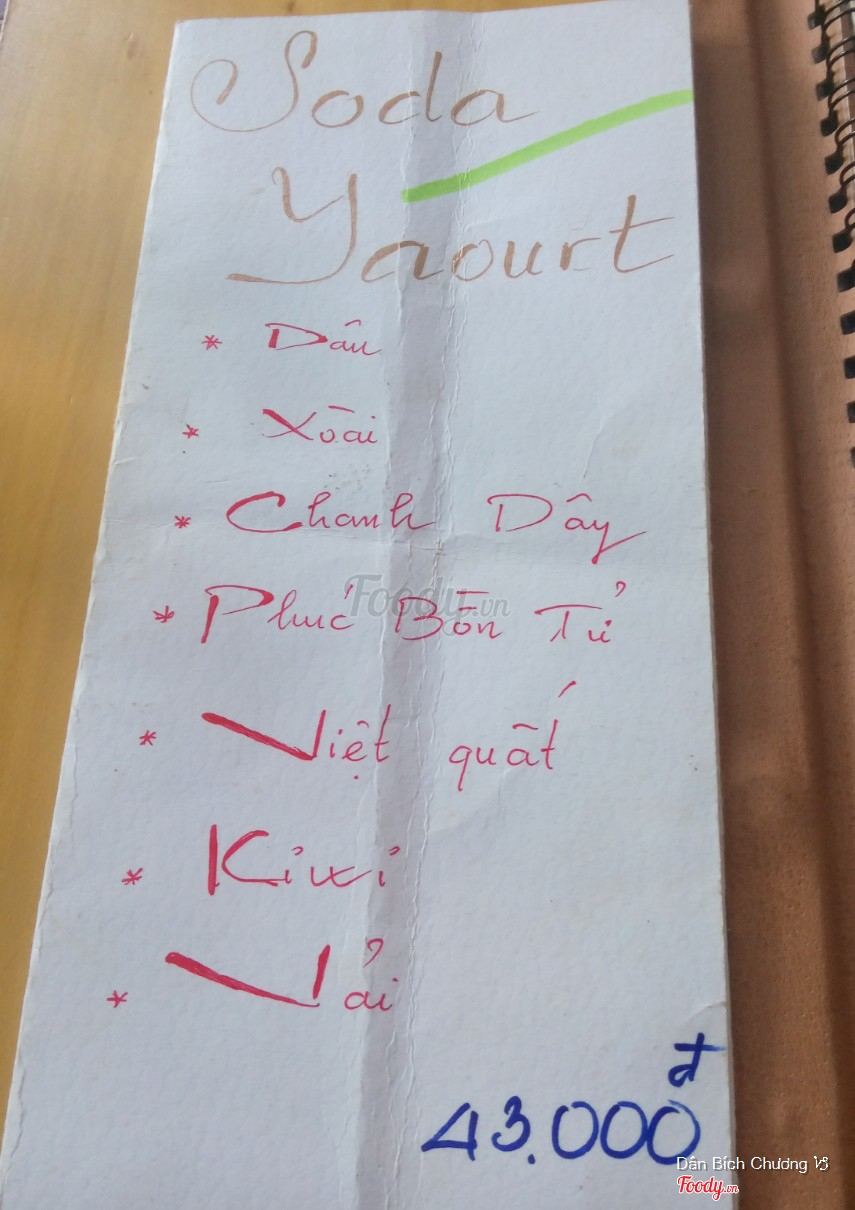 Soda
Yaourt
* Dâu
* Xoài
* Chanh Dây
* Phúc Bồn Tử
* Việt quất
* Kiwi
* Vải
43.000đ
Foody.vn
Dân Bích Chương
Foody.vn